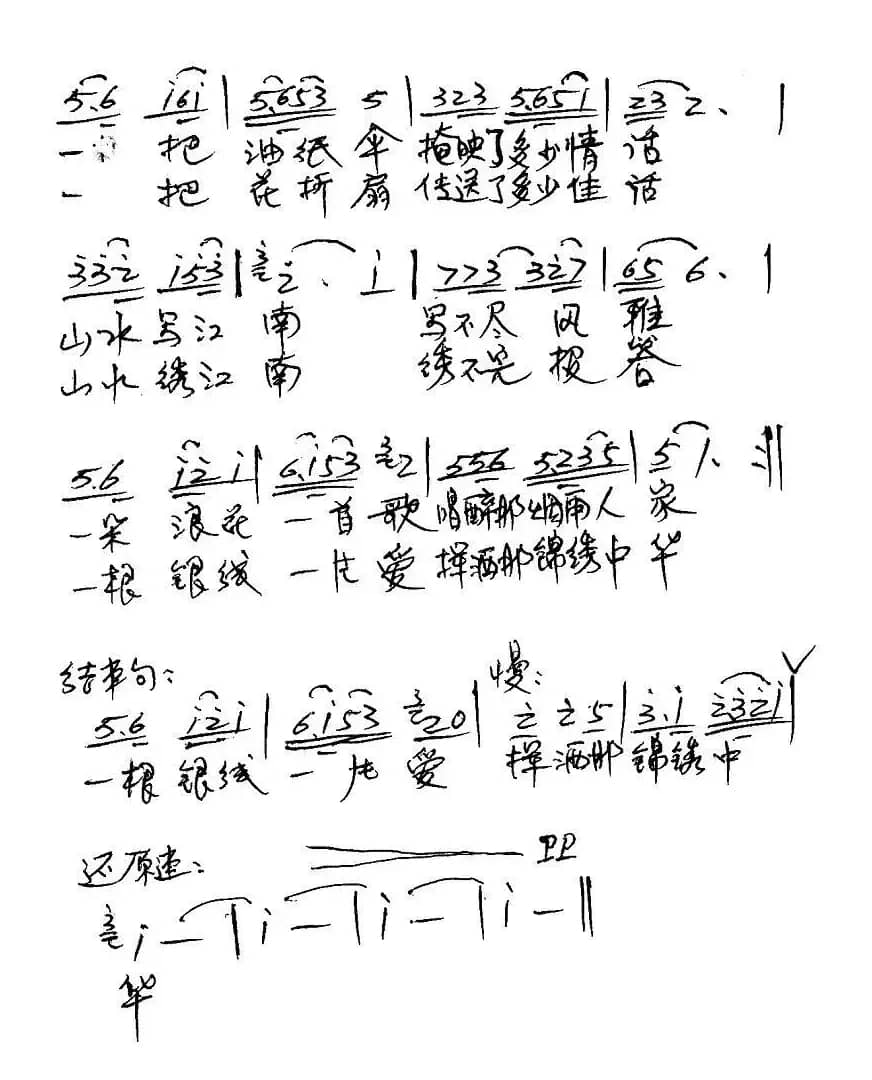 5.6 i6i | 5.653 5 | 323 5.651 | 23 2. |
一 把 油纸 伞 掩映了多少情 话
一 把 花折 扇 传送了多少佳 话
332 i53 | 2. i | 773 327 | 65 6. |
山水写江 南 写不尽 风 雅
山水绣江 南 绣不完 报 答
5.6 i2i | 6.i53 2 | 556 5.235 | 5 1. :||
一朵 浪花 一首 歌 唱醉那烟雨人 家
一根 银线 一片 爱 挥洒那锦绣中 华
结束句: 慢:
5.6 i2i | 6.i53 20 | 2 25 | 3.i 232i | V
一根 银线 一片 爱 挥洒那 锦绣 中
还原速: PP
i — | i — | i — | i — ||
华